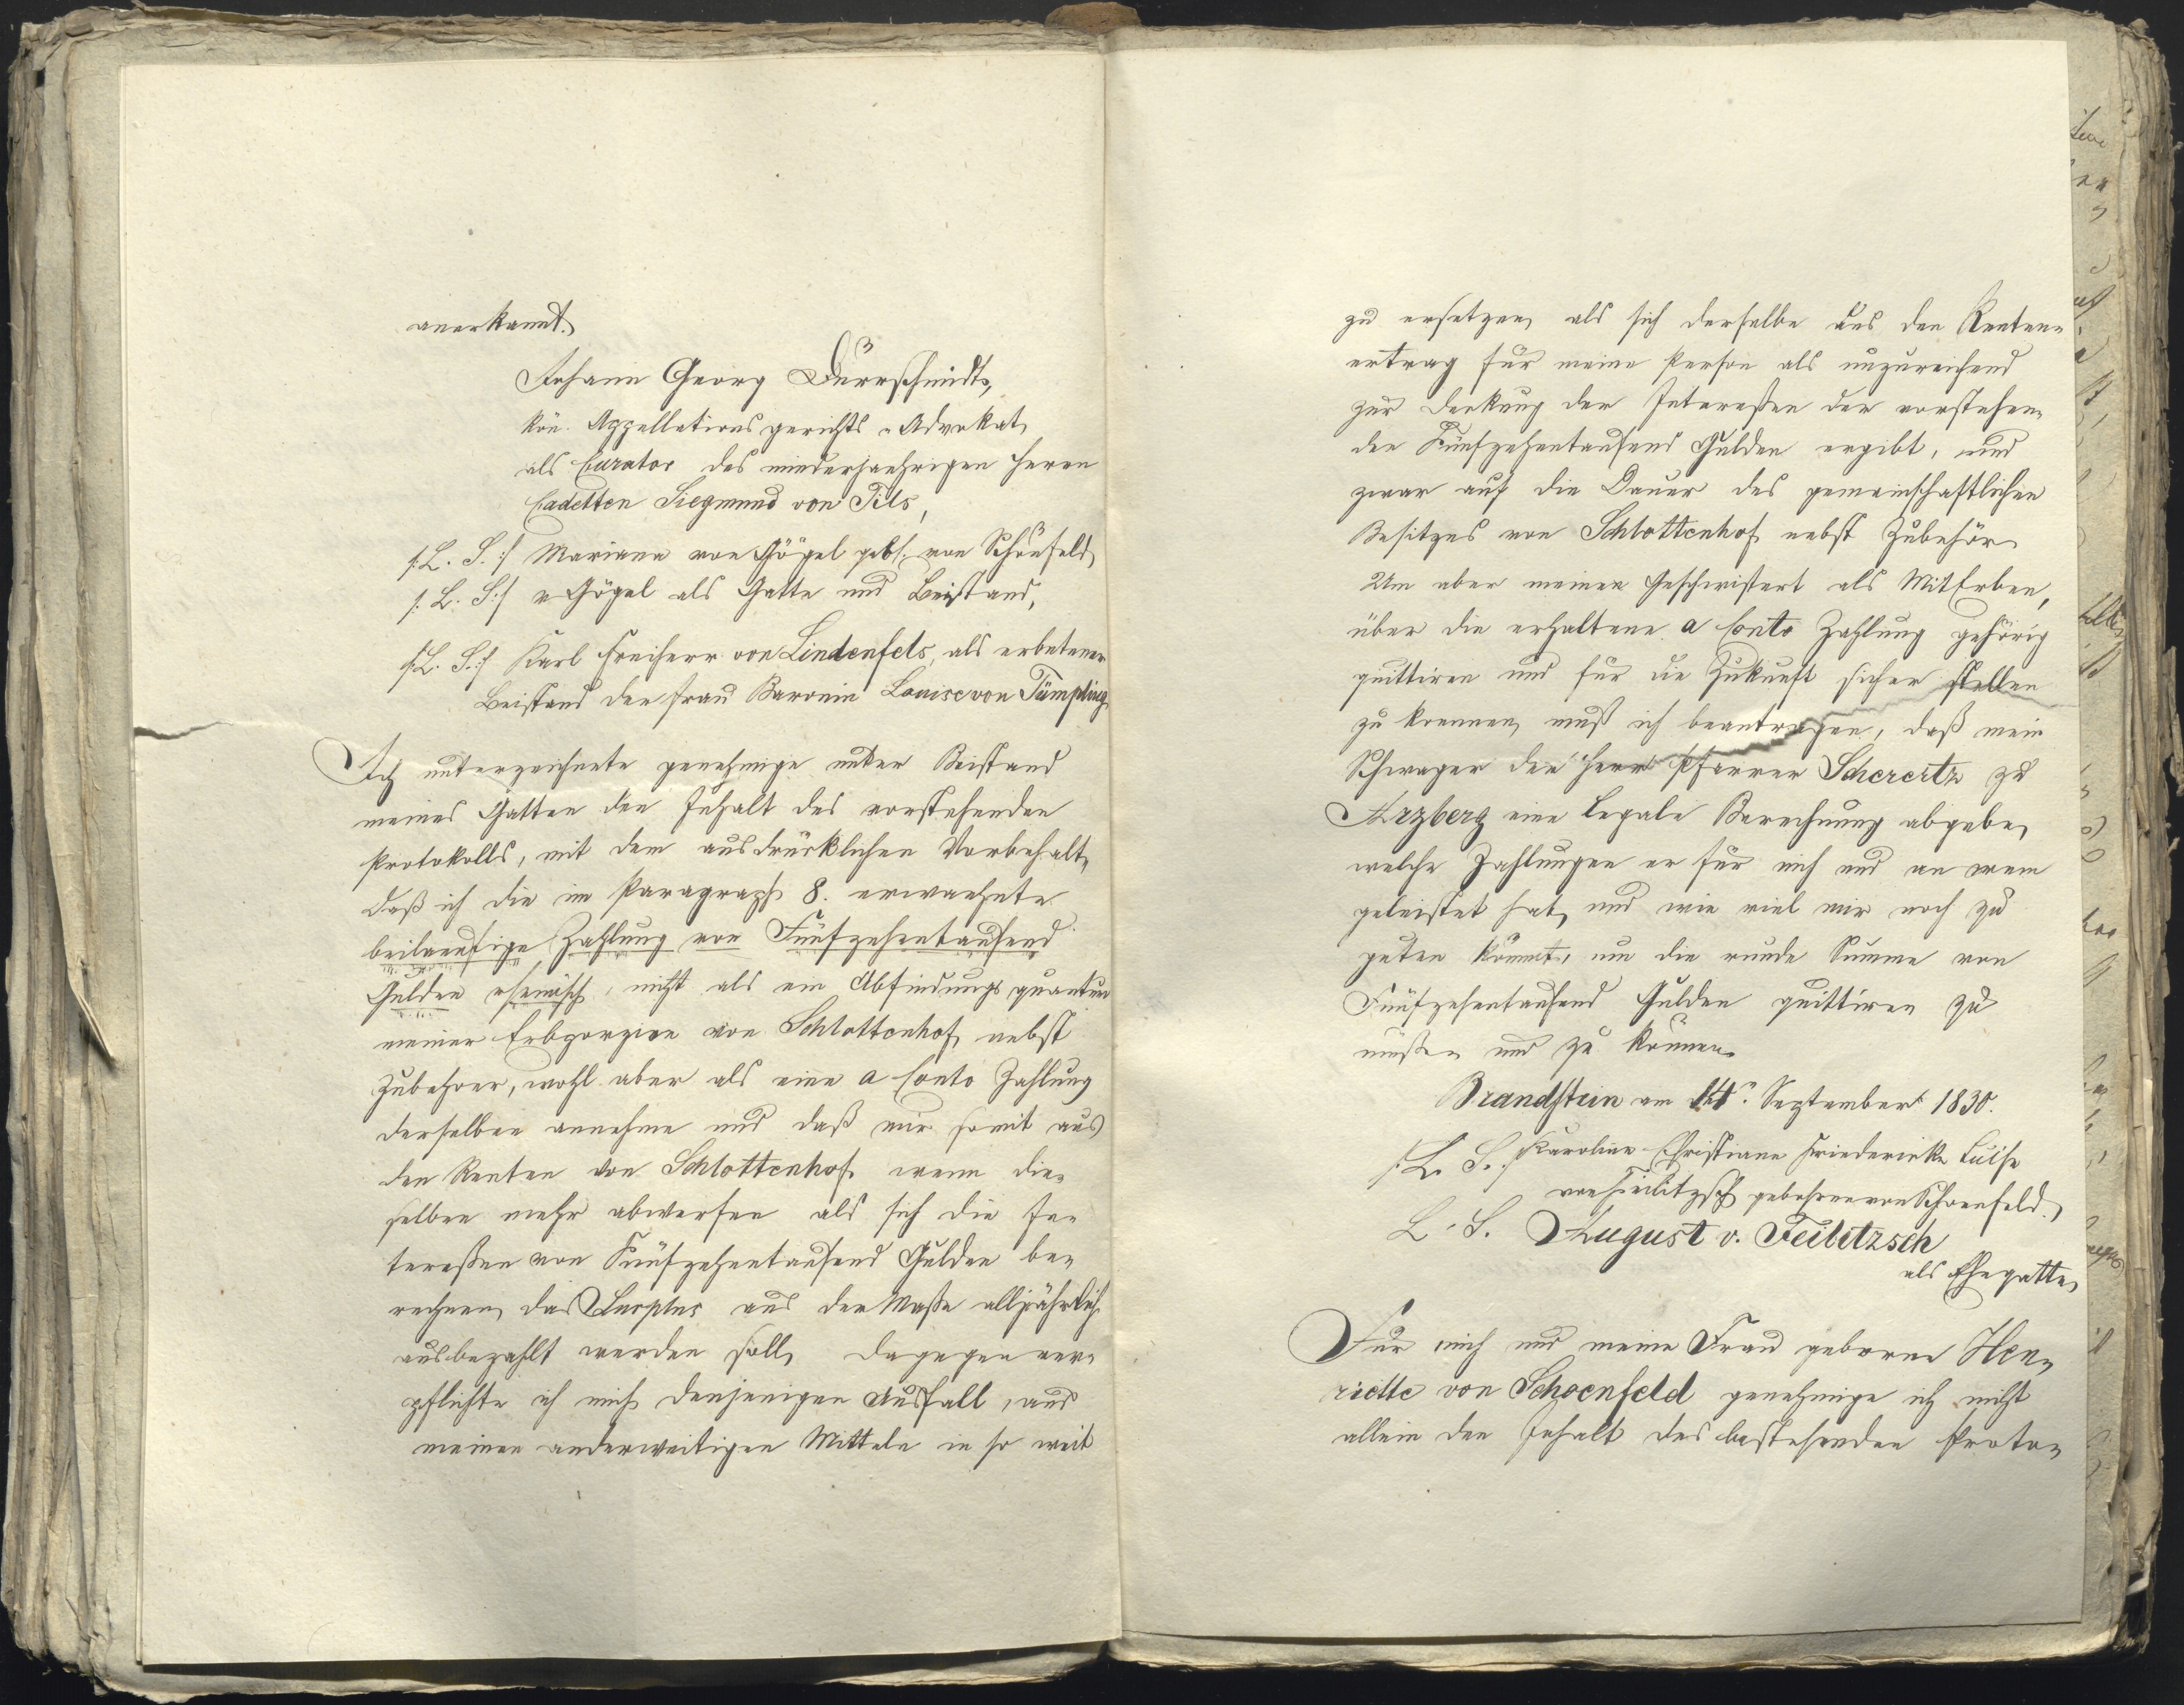 anerkannt.
Johann Georg Dürrschmidt,
kön. Appellationsgerichts-Advokat
als Curator des minderjaehrigen Herrn
Cadetten Siegmund von Tils,
/: L. S. :/ Mariana von Gögel geb. von Schönfeld
/: L. S :/ v Gögel als Gatte und Beistand,
/: L. S. :/ Karl Freiherr von Lindenfels, als erbetener
Beistand der Frau Baronin Louise von Tümpling
Ich unterzeichnete genehmige unter Beistand
meines Gatten den Inhalt des vorstehenden
Protokolls, mit dem ausdrücklichen Vorbehalt,
daß ich die im Paragraph 8. erwaehnte
beilaeufige Zahlung von Fünfzehentausend
Gulden rheinisch, nicht als ein Abfindungsquantum
meiner Erbporzion von Schlottenhof nebst
Zubehoer, wohl aber als eine a Conto Zahlung
derselben annehme und daß mir somit aus
den Renten von Schlottenhof wenn die-
selben mehr abwerfen als sich die In-
tereßen von Fünfzehentausend Gulden be-
rechnen, das Surplus aus der Maße alljährlich
ausbezahlt werden soll, dagegen ver-
pflichte ich mich denjenigen Ausfall, aus
meinen anderweitigen Mitteln in so weit
zu ersetzen, als sich derselbe aus den Renten-
ertrag für meine Person als unzureichend
zur Deckung der Intereßen der vorstehen-
den Fünfzehentausend Gulden ergibt, und
zwar auf die Dauer des gemeinschaftlichen
Besitzes von Schlottenhof nebst Zubehör.
Um aber meinen Geschwistert als MitErben,
über die erhaltene a Conto Zahlung gehörig
quittiren und für die Zukunft sicher stellen
zu koennen, muß ich beantragen, daß mein
Schwager der Herr Pfarrer Scherertz zu
Arzberg eine legale Berechnung abgebe,
welche Zahlungen er für mich und an wem
geleistet hat, und wie viel mir noch zu
guten kömmt, um die runde Summe von
Fünfzehentausend Gulden quittiren zu
müßen und zu können.
Brandstein am 14n. September 1830.
/: L. S. :/ Karoline Christiane Friedericke Luise
von Feilitzsch gebohrne von Schoenfeld.
L. S. August v. Feilitzsch
als Ehegatte,
Für mich und meine Frau geborne Hen-
riette von Schoenfeld genehmige ich nicht
allein den Inhalt des bestehenden Proto-